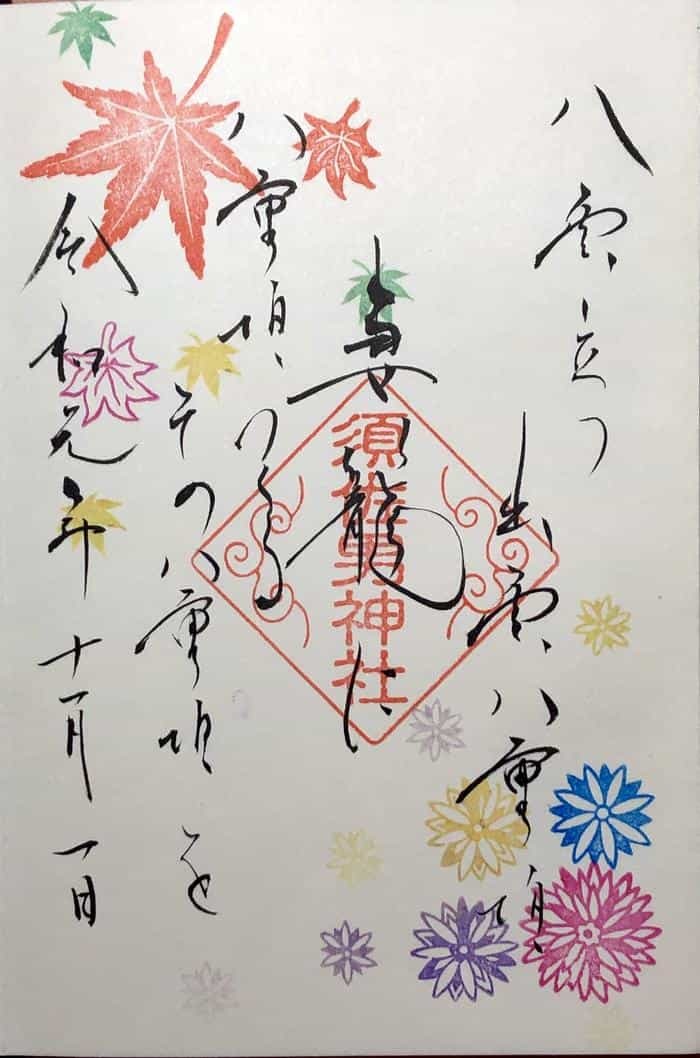 八雲立つ
出雲八重垣
妻籠に
八重垣つくる
その八重垣を
令和元年十一月一日
須佐男神社